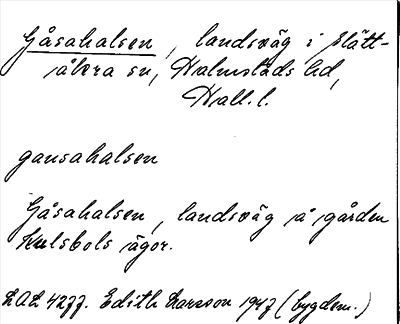 Gåsahalsen, landsväg i Slätt-
åkra sn, Halmstads hd,
Hall. l.
gansahalsen
Gåsahalsen, landsväg å gården
Kulsbols ägor.
LAL 4277. Edith Larsson 1947 (bygdem.)